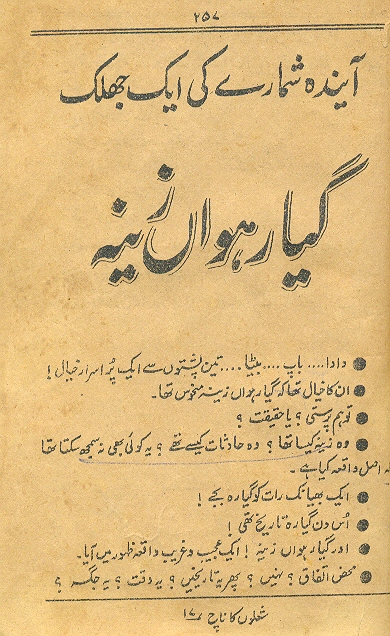 ۲۵۷
آیندہ شمارے کی ایک جھلک
گیارہواں زینہ
● دادا.... باپ.... بیٹا.... تین پشتوں سے ایک پُراسرار خیال!
● ان کا خیال تھا کہ گیارہواں زینہ منحوس تھا۔
● توہم پرستی؟ یا حقیقت؟
● وہ زینہ کیسا تھا؟ وہ حادثات کیسے تھے؟ یہ کوئی بھی نہ سمجھ سکتا تھا
کہ اصل واقعہ کیا ہے۔
● ایک بھیانک رات کو گیارہ بجے!
● اُس دن گیارہ تاریخ تھی!
● اور گیارہواں زینہ! ایک عجیب و غریب واقعہ ظہور میں آیا۔
● محض اتفاق؟ نہیں؟ پھر یہ تاریخیں؟ یہ وقت؟ یہ جگہ؟
شعلوں کا ناچ ۱۷